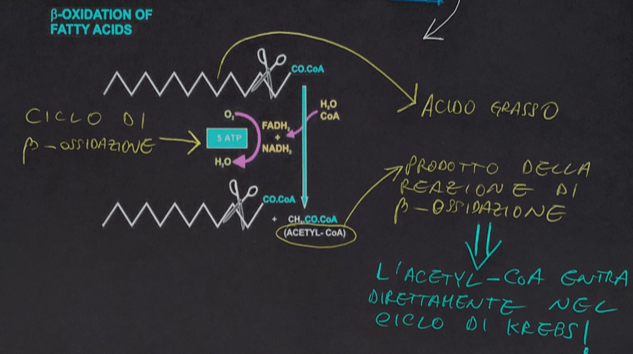 β-OXIDATION OF
FATTY ACIDS
CO.CoA
O₂
H₂O
CoA
FADH₂
+
NADH₂
5 ATP
H₂O
CO.CoA
+ CH₃.CO.CoA
(ACETYL-CoA)
CICLO DI
β-OSSIDAZIONE
ACIDO GRASSO
PRODOTTO DELLA
REAZIONE DI
β-OSSIDAZIONE
L'ACETYL-CoA ENTRA
DIRETTAMENTE NEL
CICLO DI KREBS!